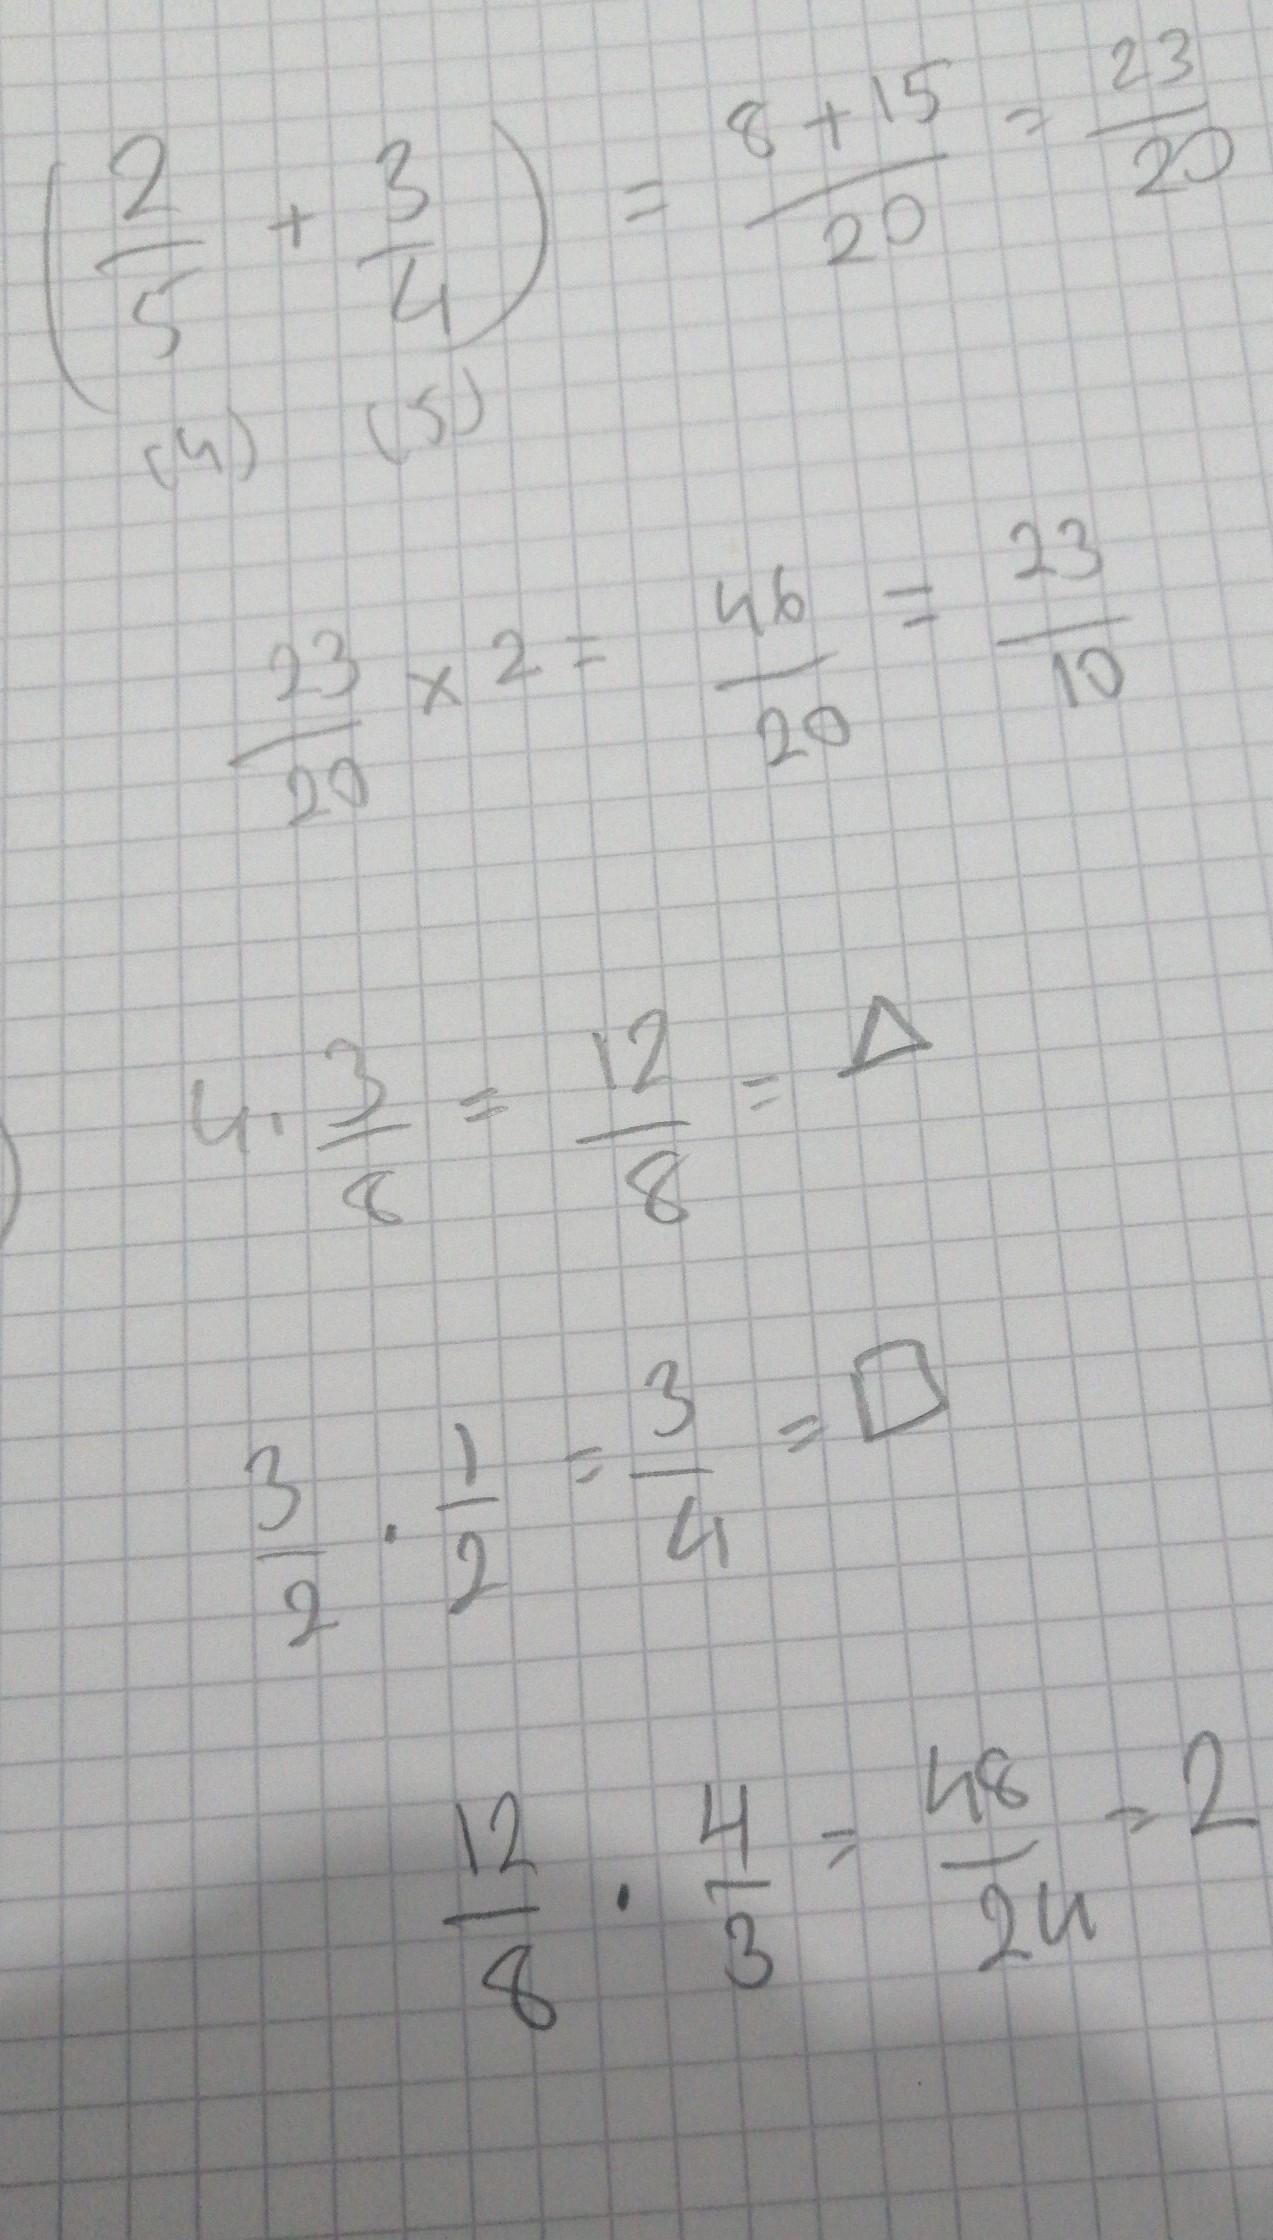 (2/5 + 3/4) = (8+15)/20 = 23/20
(4) (5)
23/20 x 2 = 46/20 = 23/10
4 · 3/8 = 12/8 = △
3/2 · 1/2 = 3/4 = □
12/8 · 4/3 = 48/24 = 2